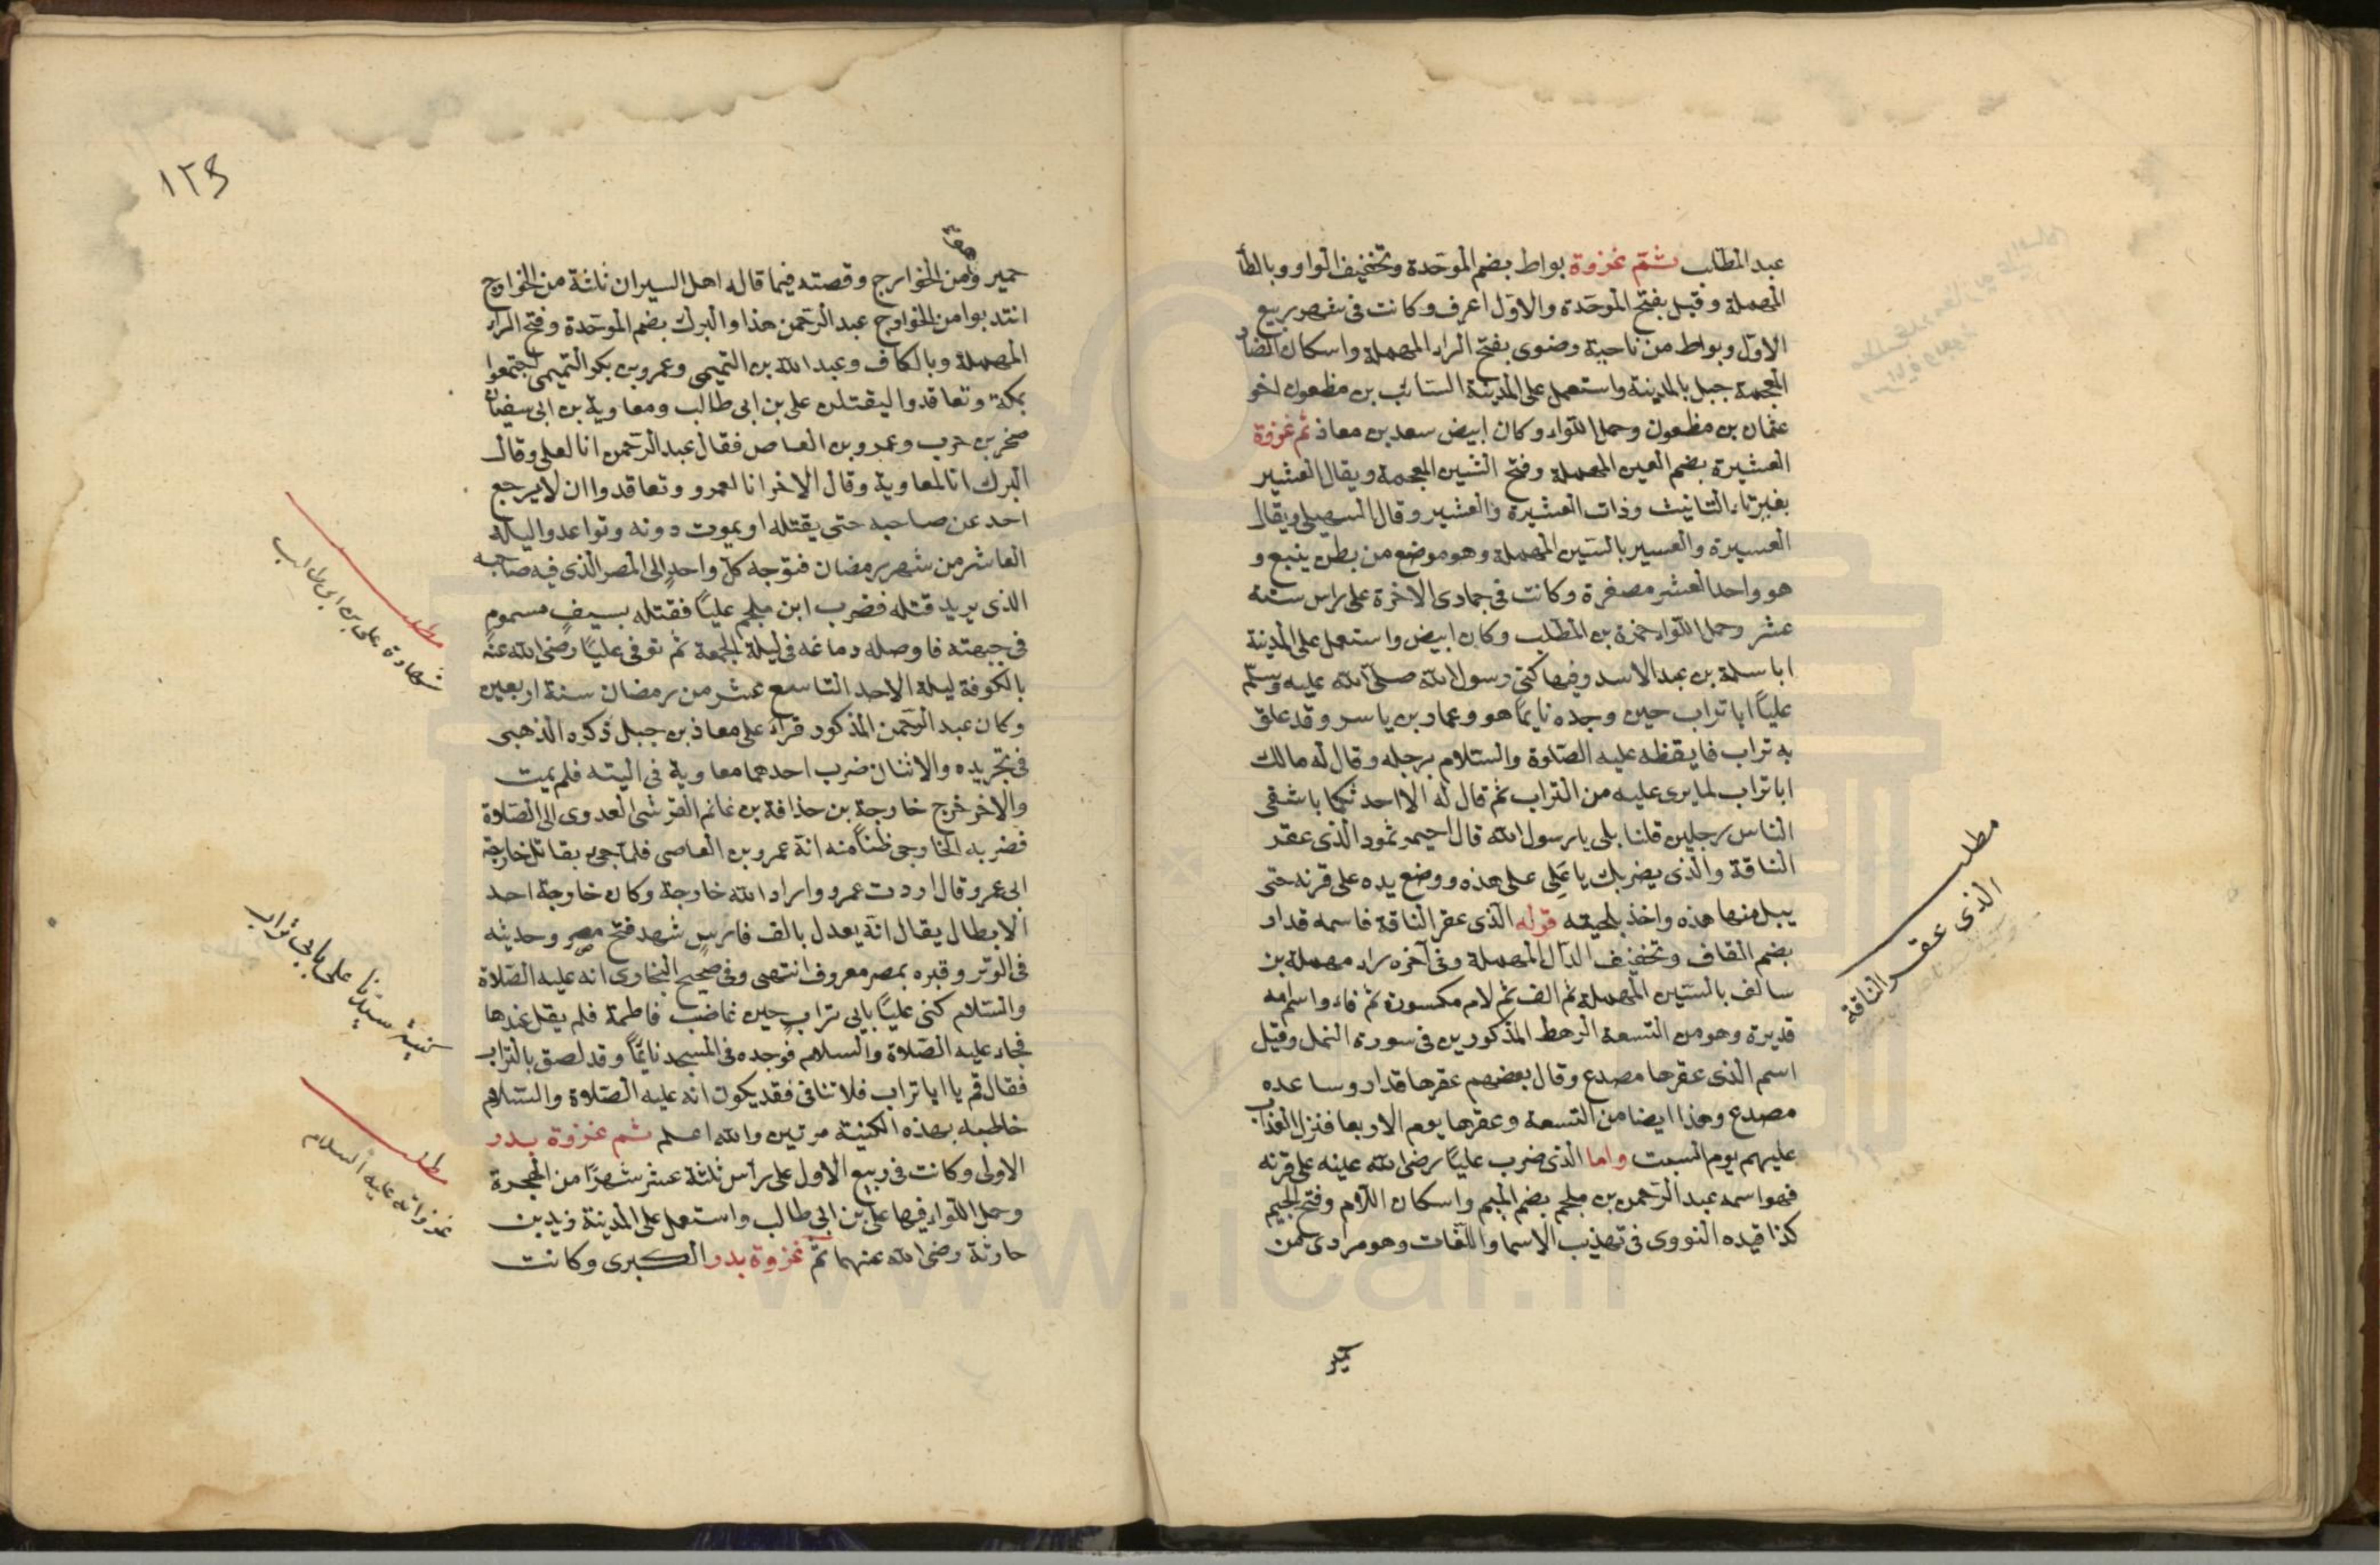 عبد المطلب ثم غزوة بواط بضم الموحدة وتخفيف الواو وبالطاء
المهملة وقيل بفتح الموحدة والاول اعرف وكانت في شهر ربيع
الاول وبواط من ناحية رضوى بفتح الراء المهملة واسكان الضاد
المعجمة جبل بالمدينة واستعمل على المدينة السائب بن مظعون اخو
عثمان بن مظعون وحمل اللواء وكان ابيض سعد بن معاذ ثم غزوة
العشيرة بضم العين المهملة وفتح الشين المعجمة ويقال العشير
بغير تاء التانيث وذات العشيرة والعشير وقال السهيلي ويقال
العسيرة والعسير بالسين المهملة وهو موضع من بطن ينبع و
هو واحد العشر مصغرة وكانت في جمادى الاخرة على راس ستة
عشر وحمل اللواء حمزة بن المطلب وكان ابيض واستعمل على المدينة
ابا سلمة بن عبد الاسد وفيها كنى رسول الله صلى الله عليه وسلم
عليا ابا تراب حين وجده نايما هو وعمار بن ياسر وقد علق
به تراب فايقظه عليه الصلوة والسلام برجله وقال له مالك
ابا تراب لما يرى عليه من التراب ثم قال له الا احدثكما باشقى
الناس رجلين قلنا بلى يا رسول الله قال احيمر ثمود الذى عقر
الناقة والذى يضربك يا علي على هذه ووضع يده على قرنه حتى
يبل منها هذه واخذ بلحيته قوله الذى عقر الناقة فاسمه قدار
بضم القاف وتخفيف الدال المهملة وفى آخره راء مهملة بن
سالف بالسين المهملة ثم الف ثم لام مكسورة ثم فاء واسم امه
قديرة وهو من التسعة الرهط المذكورين فى سورة النمل وقيل
اسم الذى عقرها مصدع وقال بعضهم عقرها قدار وساعده
مصدع وهذا ايضا من التسعة وعقرها يوم الاربعا فنزل العذاب
عليهم يوم السبت واما الذى ضرب عليا رضى الله عنه على قرنه
فهو اسمه عبد الرحمن بن ملجم بضم الميم واسكان اللام وفتح الجيم
كذا قيده النووى فى تهذيب الاسما واللغات وهو مرادى من
مطلب
الذى عقر الناقة
١٢٤
حمير ومن الخوارج وقصته فيما قاله اهل السير ان ثلثة من الخوارج
انتدبوا من الخوارج عبد الرحمن هذا والبرك بضم الموحدة وفتح الراء
المهملة وبالكاف وعبد الله بن التميمى وعمرو بن بكر التميمى اجتمعوا
بمكة وتعاقدوا ليقتلن على بن ابى طالب ومعاوية بن ابى سفيان
صخر بن حرب وعمرو بن العاص فقال عبد الرحمن انا لعلى وقال
البرك انا لمعاوية وقال الاخر انا لعمرو وتعاقدوا ان لا يرجع
احد عن صاحبه حتى يقتله او يموت دونه وتواعدوا ليلة
العاشر من شهر رمضان فتوجه كل واحد الى المصر الذى فيه صاحبه
الذى يريد قتله فضرب ابن ملجم عليا فقتله بسيف مسموم
فى جبهته فاوصله دماغه فى ليلة الجمعة ثم توفى عليا رضى الله عنه
بالكوفة ليلة الاحد التاسع عشر من رمضان سنة اربعين
وكان عبد الرحمن المذكور قراء على معاذ بن جبل ذكره الذهبى
فى تجريده والاثنان ضرب احدهما معاوية فى اليته فلم يمت
والاخر خرج خارجة بن حذافة بن غانم القرشى العدوى الى الصلاة
فضربه الخارجى ظنا منه انه عمرو بن العاصى فلما جىء بقاتل خارجة
الى عمرو قال اردت عمرو واراد الله خارجة وكان خارجة احد
الابطال يقال انه يعدل بالف فارس شهد فتح مصر وحديثه
فى الوتر وقبره بمصر معروف انتهى وفى صحيح البخارى انه عليه الصلاة
والسلام كنى عليا بابى تراب حين غاضب فاطمة فلم يقل عندها
فجاء عليه الصلاة والسلام فوجده فى المسجد نائما وقد لصق بالتراب
فقال قم يا ابا تراب فلا تنافى فقد يكون انه عليه الصلاة والسلام
خاطبه بهذه الكنية مرتين والله اعلم ثم غزوة بدر
الاولى وكانت فى ربيع الاول على رأس ثلثة عشر شهرا من الهجرة
وحمل اللواء فيها على بن ابى طالب واستعمل على المدينة زيد بن
حارثة رضى الله عنهما ثم غزوة بدر الكبرى وكانت
مطلب
شهادة على بن ابى طالب
كنية سيدنا على بابى تراب
مطلب
غزواته عليه السلام